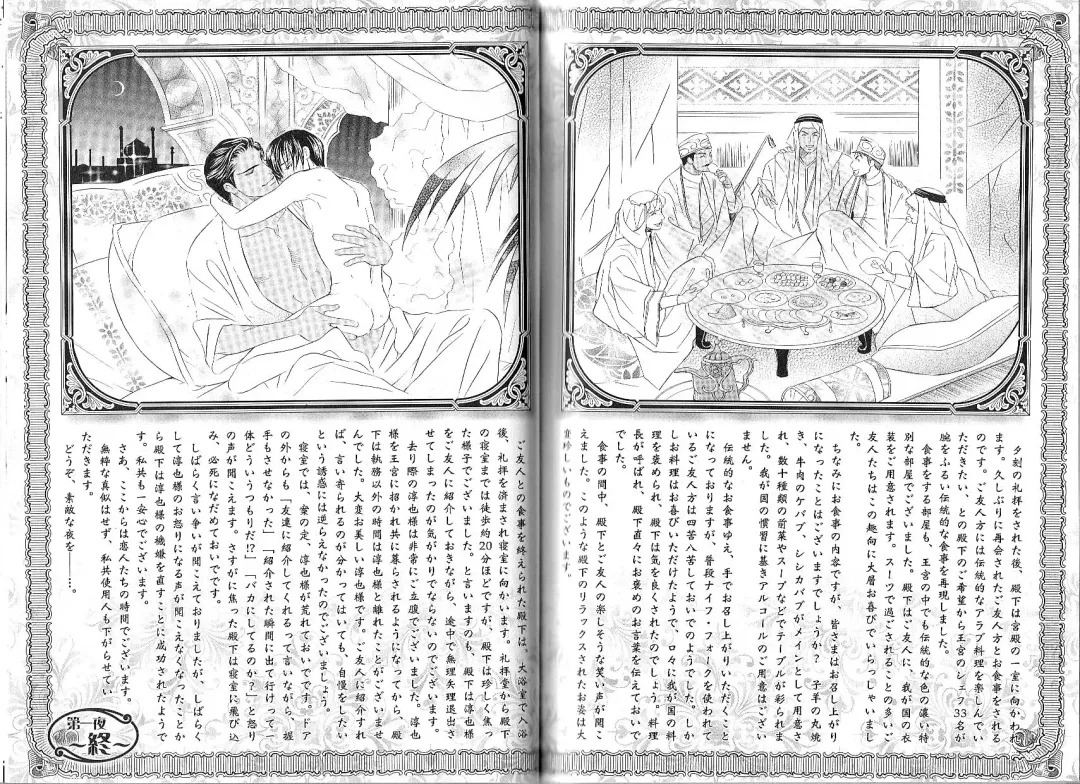 夕刻の礼拝をされた後、殿下は宮殿の一室に向かわれ
ます。久しぶりに再会されたご友人とお食事をされる
のです。ご友人方には伝統的なアラブ料理を楽しんでい
ただきたい、との殿下のご希望から王宮のシェフ33名が
腕をふるい伝統的な食事を再現しました。
食事をする部屋も、王宮の中でも伝統的な色の濃い特
別な部屋でございました。殿下はご友人に、我が国の衣
装をご用意されます。スーツで過ごされることの多いご
友人たちはこの趣向に大層お喜びでいらっしゃいまし
た。
ちなみにお食事の内容ですが、皆さまはお召し上がり
になったことはございますでしょうか？ 子羊の丸焼
き、牛肉のケバブ、シシカバブがメインとして用意さ
れ、数十種類の前菜やスープなどでテーブルが彩られま
した。我が国の慣習に基きアルコールのご用意はござい
ません。
伝統的なお食事ゆえ、手でお召し上がりいただくこと
になっておりますが、普段ナイフ・フォークを使われて
いるご友人方は四苦八苦しておいでのようでした。しか
しお料理はお喜びいただけたようで、口々に我が国の料
理を褒められ、殿下は気を良くされたのでしょう。料理
長が呼ばれ、殿下直々にお褒めのお言葉を伝えておいで
でした。
食事の間中、殿下とご友人の楽しそうな笑い声が聞こ
えました。このような殿下のリラックスされたお姿は大
変珍しいものでございます。
ご友人とのお食事を終えられた殿下は、大浴室で入浴
後、礼拝を済まされ寝室に向かいます。礼拝室から殿下
の寝室までは徒歩約20分ほどですが、殿下は珍しく焦っ
た様子でございました。と言いますのも、殿下は淳也様
をご友人に紹介しておきながら、途中で無理矢理退出さ
せてしまったのが気がかりでならないのでございます。
去り際の淳也様は非常にご立腹でございました。淳也
様を王宮に招かれ共に暮らされるようになってから、殿
下は執務以外の時間は淳也様と離れたことがございませ
んでした。大変お美しい淳也様です。ご友人に紹介すれ
ば、言い寄られるのが分かってはいても、自慢をしたい
という誘惑には逆らえなかったのでございましょう。
寝室では、案の定、淳也様が荒れておいでです。ドア
の外からも「友達に紹介してくれるって言いながら、握
手もさせなかった」「紹介された瞬間に出て行けって一
体どういうつもりだ!?」「バカにしてるのか？」と怒り
の声が聞こえます。さすがに焦った殿下は寝室に飛び込
み、必死になだめておいでです。
しばらく言い争いが聞こえておりましたが、しばらく
して淳也様のお怒りになる声が聞こえなくなったことか
ら殿下は淳也様の機嫌を直すことに成功されたようで
す。私共も一安心でございます。
さあ、ここからは恋人たちの時間でございます。
無粋な真似はせず、私共使用人も下がらせてい
ただきます。
どうぞ、素敵な夜を――…。
第一夜
～終～